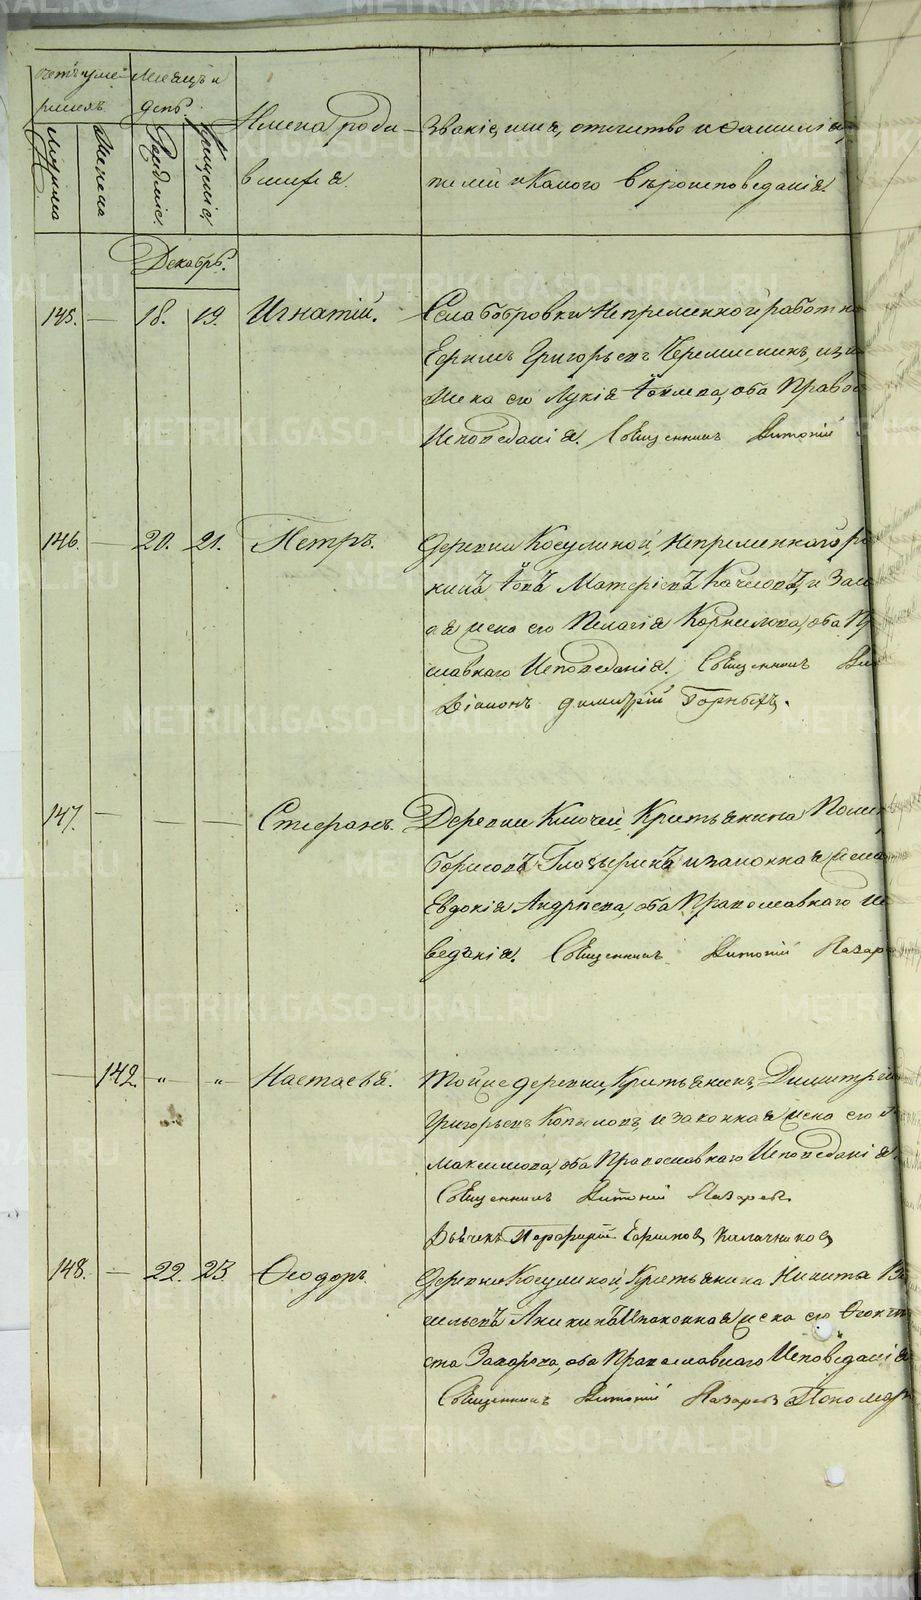 Мѣсяцъ и
день.
Имена роди-
вшихся.
Званіе, имя, отчество и фамилія
телей и какого вѣроисповеданія.
Мужска
Женска
Рожденія.
Крещенія.
Декабрь.
145. — 18. 19. Игнатій. Села Бобровки Непременной работн
Ефимъ Григорьевъ Черемисинъ, и за
жена его Лукія, оба Право
Исповеданія. Священникъ Антоній
146. — 20. 21. Петръ. Деревни Косулиной, Непременнаго ра
никъ Качевъ, и Зако
ая жена его Пелагія Корнилова, оба Пр
славнаго Исповеданія. Священникъ
Діаконъ Димитрій Горныхъ.
147. — — — Стефанъ. Деревни Ключей Крестьянина
Борисовъ Глазыринъ и законная жена
Евдокія Андреева, оба Православнаго Ис
веданія. Священникъ Антоній Лазар
— 142. „ „ Настасья. Тойже деревни, Крестьянинъ, Димитрій
Григорьевъ Копыловъ, и законная жена его
Максимова, оба Православнаго Исповеданія.
Священникъ Антоній Лазаревъ
Дьячекъ Порфирій Ефимовъ Калачниковъ
148. — 22. 23 Ѳеодоръ. Деревни Косулиной, Крестьянина Никита Ва
сильевъ Аникинъ и законная жена его Ѳеокти
ста Захарова, оба Православнаго Исповѣданія
Священникъ Антоній Лазаревъ Пономарь
METRIKI.GASO-URAL.RU